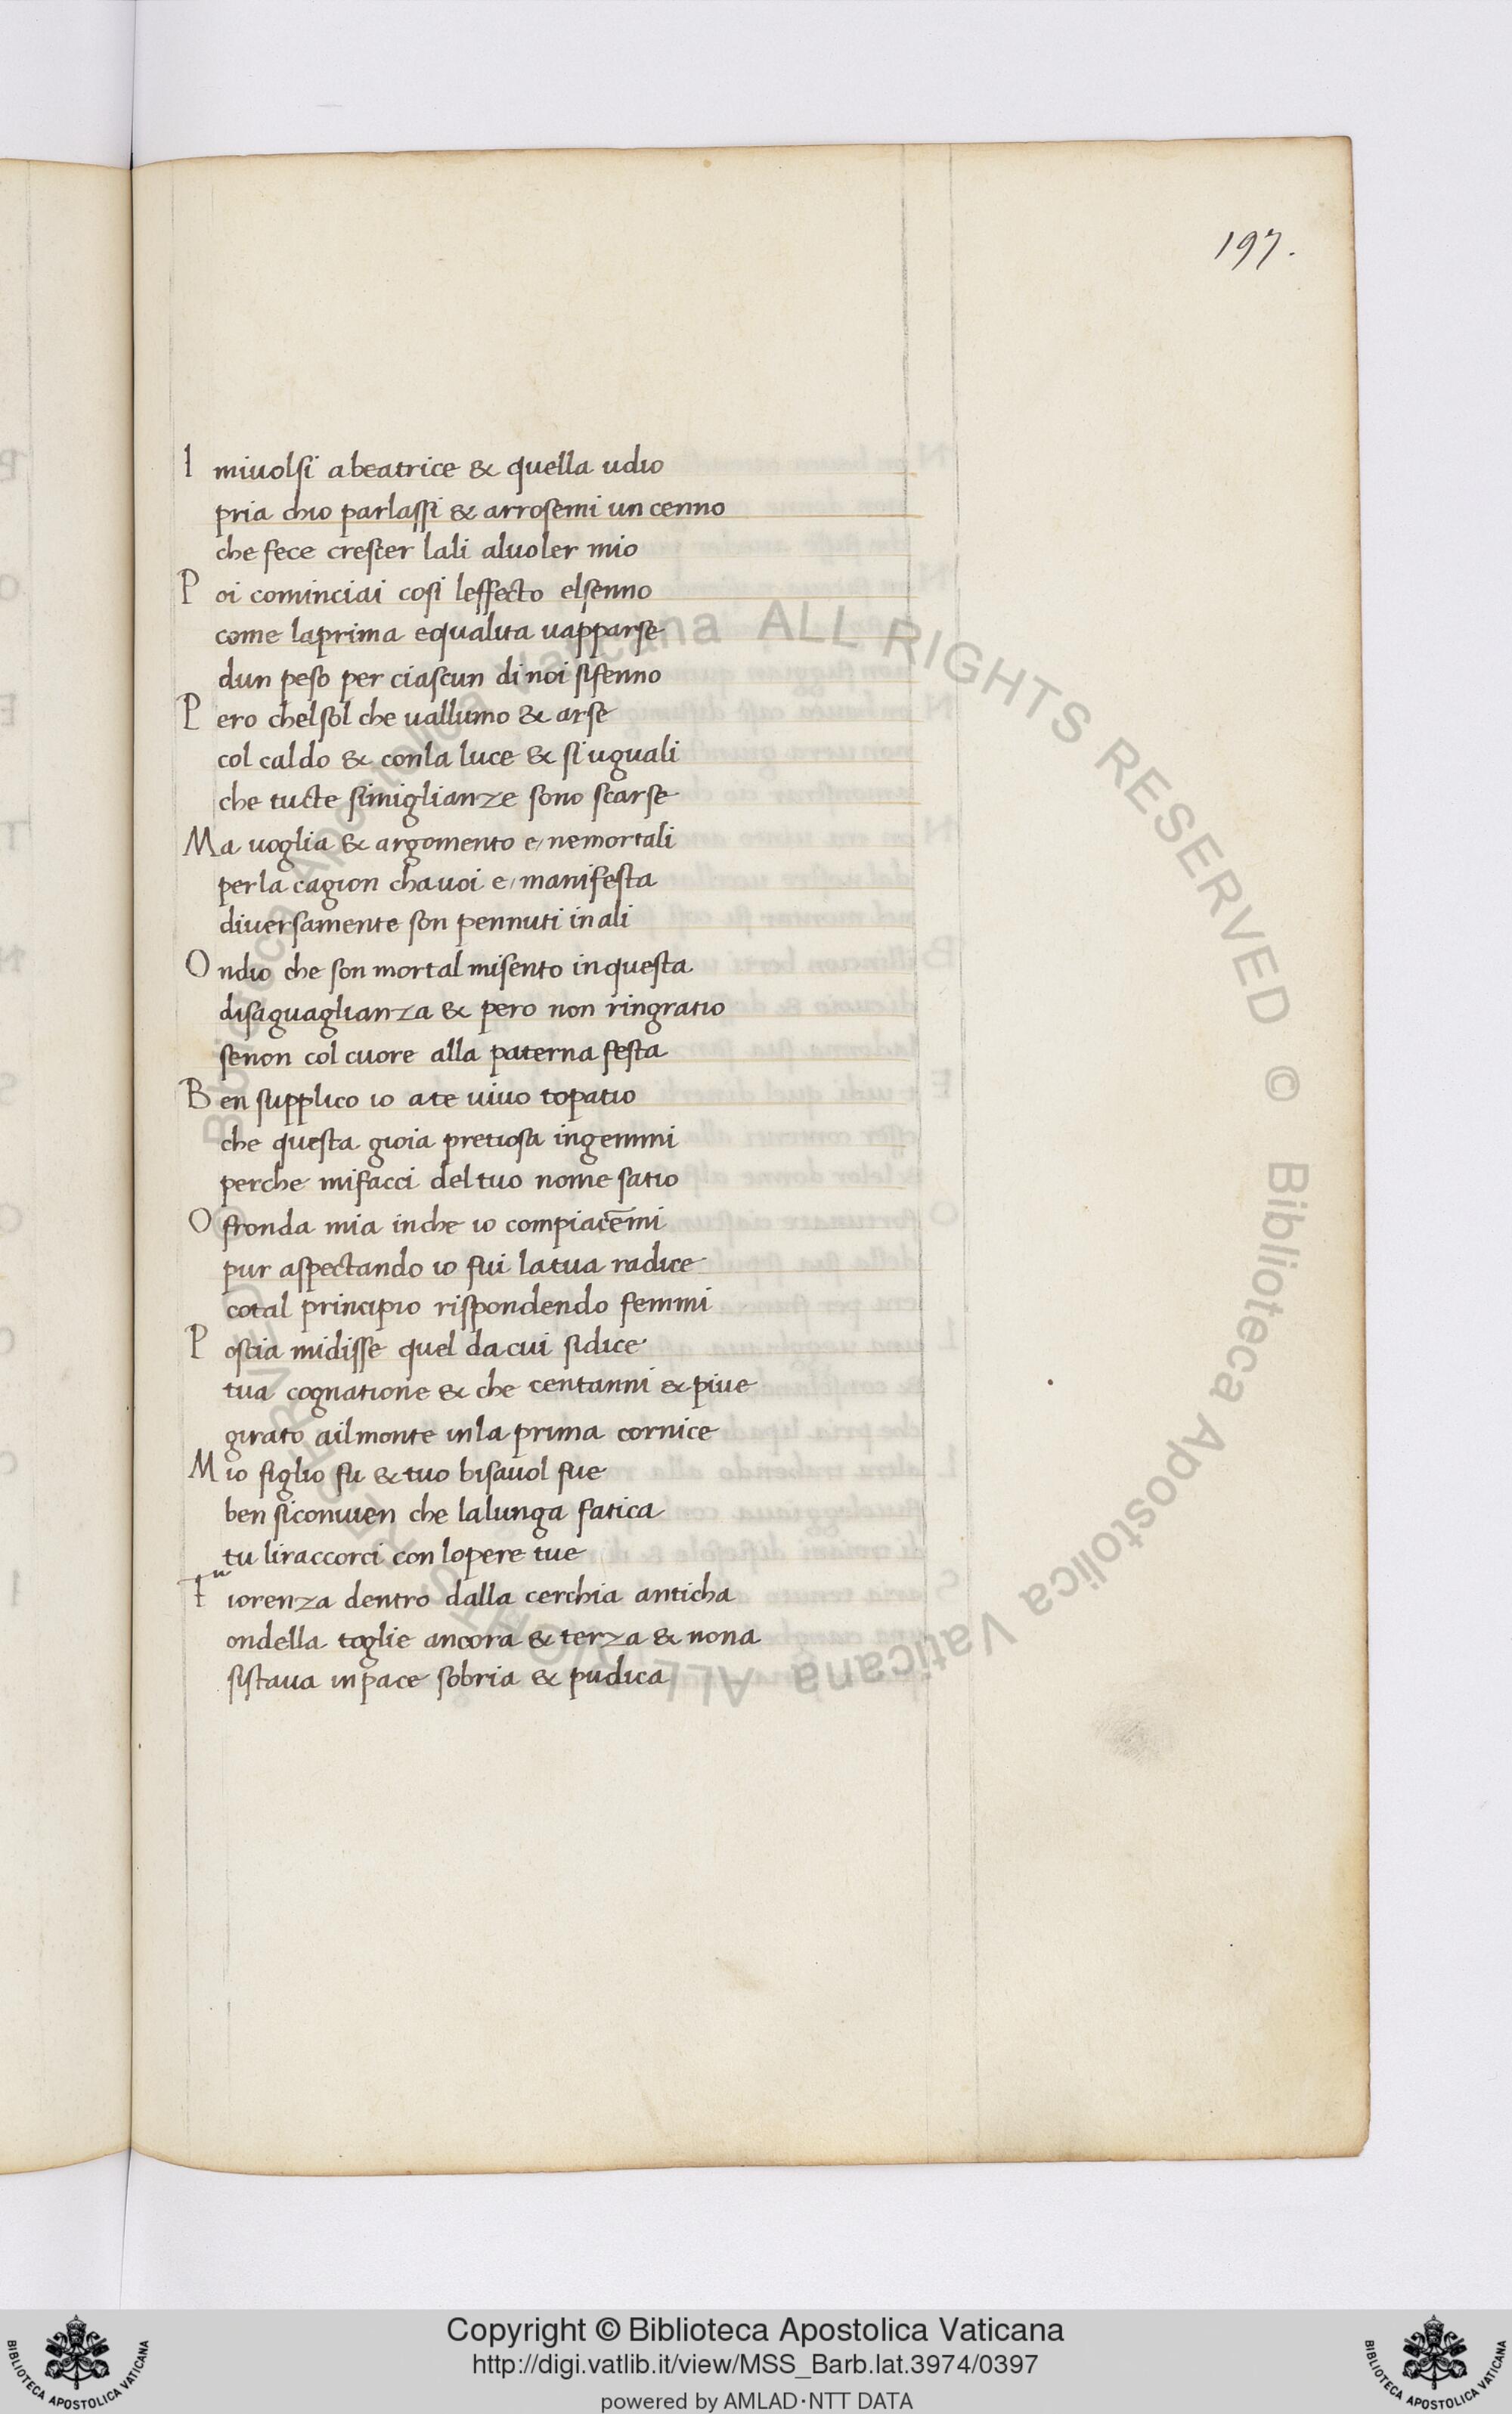 197.
I mivolsi abeatrice & quella udio
pria chio parlassi & arrosemi un cenno
che fece crescer lali alvoler mio
P oi cominciai cosi leffecto elsenno
come laprima equalita vapparse
dun peso per ciascun di noi sifenno
P ero chelsol che vallumo & arse
col caldo & conla luce & si uguali
che tucte simiglianze sono scarse
M a uoglia & argomento e nemortali
perla cagion chavoi e manifesta
diversamente son pennuti in ali
O ndio che son mortal misento inquesta
disaguaglianza & pero non ringratio
senon col cuore alla paterna festa
B en supplico io ate vivo topatio
che questa gioia pretiosa ingemmi
perche mifacci deltuo nome satio
O fronda mia inche io compiacēmi
pur aspectando io fui latua radice
cotal principio rispondendo femmi
P oscia midisse quel dacui sidice
tua cognatione & che centanni & piue
girato ailmonte inla prima cornice
M io figlio fu & tuo bisavol fue
ben siconvien che lalunga fatica
tu liraccorci con lopere tue
F iorenza dentro dalla cerchia anticha
ondella toglie ancora & terza & nona
sistava inpace sobria & pudica
Biblioteca Apostolica Vaticana ALL RIGHTS RESERVED © Biblioteca Apostolica Vaticana ALL RIGHTS RESERVED ©
Copyright © Biblioteca Apostolica Vaticana
http://digi.vatlib.it/view/MSS_Barb.lat.3974/0397
powered by AMLAD·NTT DATA
BIBLIOTECA APOSTOLICA VATICANA
BIBLIOTECA APOSTOLICA VATICANA